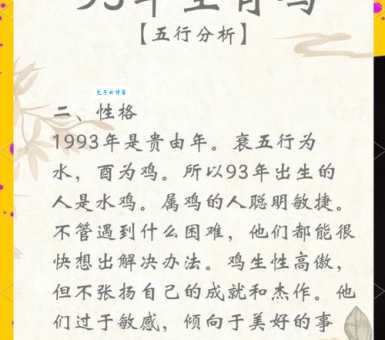 93年生肖鸡
【五行分析】
二、性格
1993年是贵由年。衰五行为
水，酉为鸡。所以93年出生的
人是水鸡。属鸡的人聪明敏捷。
不管遇到什么困难，他们都能很
快想出解决办法。鸡生性高傲，
但不张扬自己的成就和杰作。他
们过于敏感，倾向于美好的事